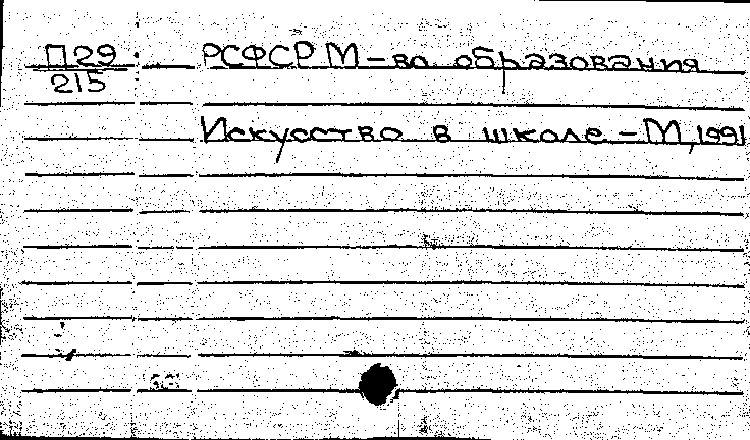 П29 РСФСР М-во образования
215
Искусство в школе - М, 1991